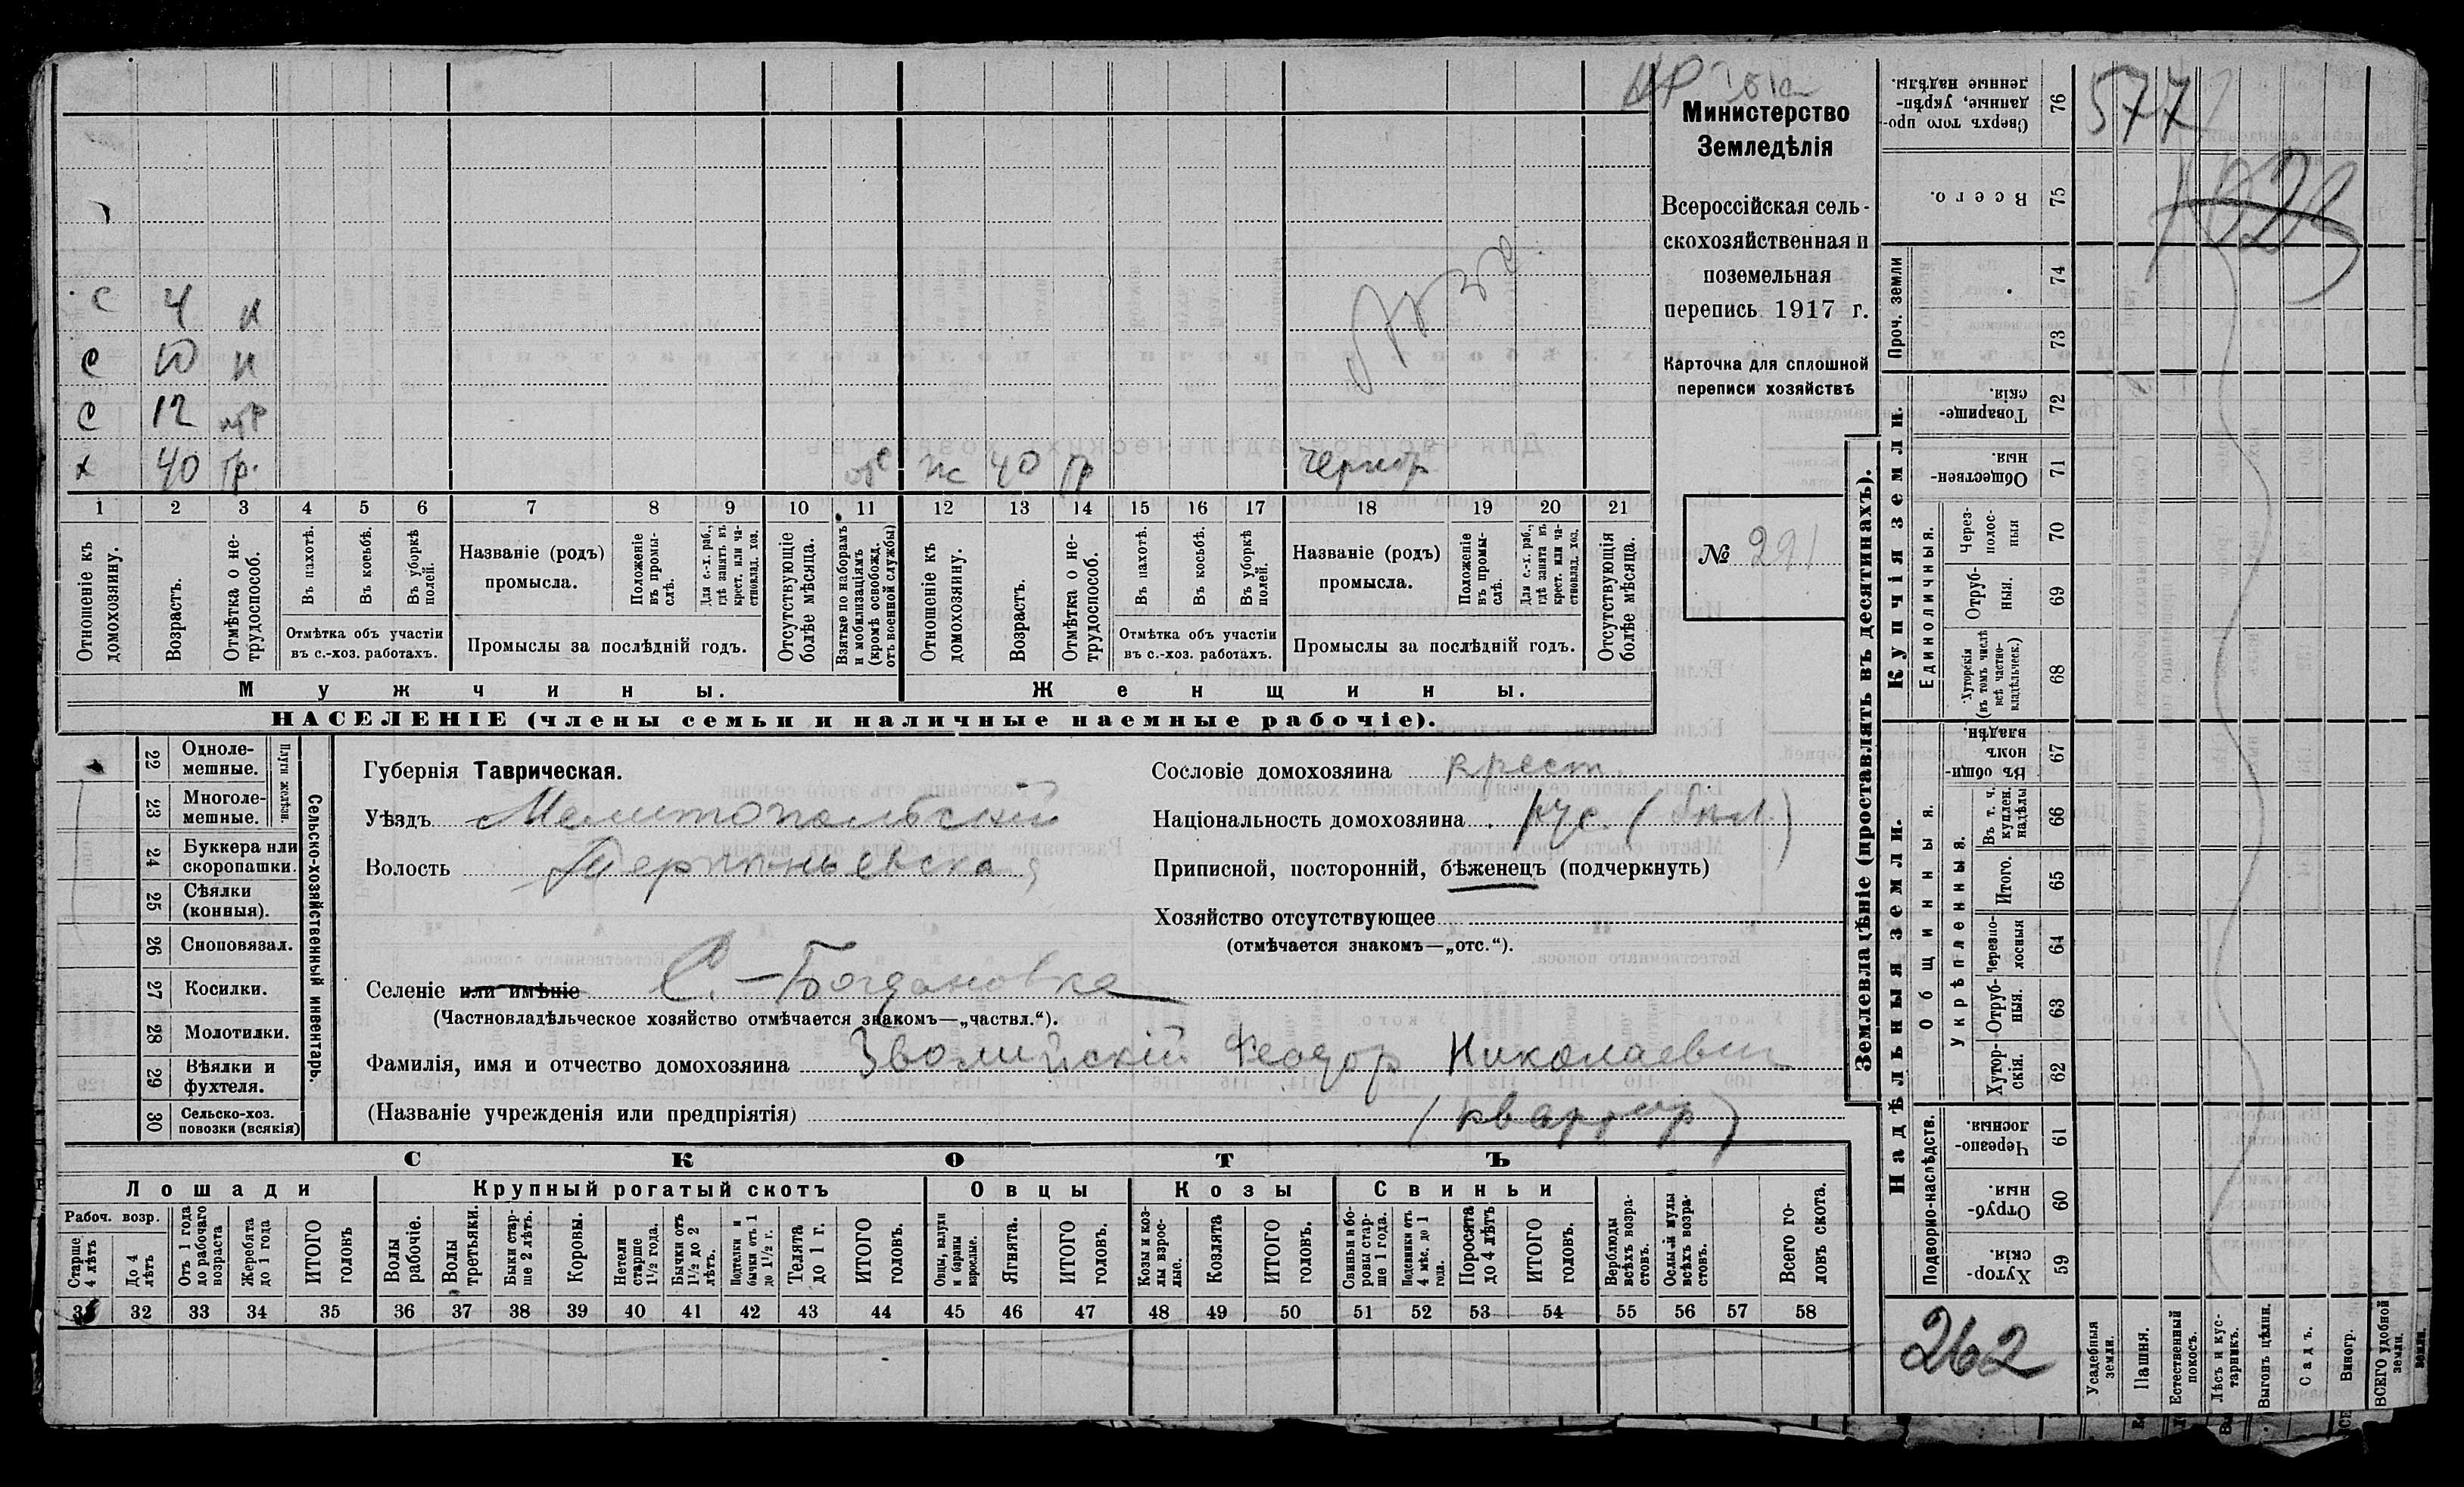 Министерство
Земледѣлія
Всероссійская сель-
скохозяйственная и
поземельная
перепись 1917 г.
Карточка для сплошной
переписи хозяйствъ
№ 291
с 4 н
с 10 н
с 12
х 40 гр. ж 40 гр
1 2 3 4 5 6 7 8 9 10 11 12 13 14 15 16 17 18 19 20 21
Отношеніе къ домохозяину.
Возрастъ.
Отмѣтка о не-трудоспособ.
Въ пахотѣ.
Въ косьбѣ.
Въ уборкѣ полей.
Отмѣтка объ участіи
въ с.-хоз. работахъ.
Названіе (родъ)
промысла.
Положеніе въ промы-слѣ.
Для с.-х. раб., гдѣ занятъ въ крест. или ча-стновлад. хоз.
Промыслы за послѣдній годъ.
Отсутствующіе болѣе мѣсяца.
Взятые по наборамъ и мобилизаціямъ (кромѣ освобожд. отъ военной службы)
Отношеніе къ домохозяину.
Возрастъ.
Отмѣтка о не-трудоспособ.
Въ пахотѣ.
Въ косьбѣ.
Въ уборкѣ полей.
Отмѣтка объ участіи
въ с.-хоз. работахъ.
Названіе (родъ)
промысла.
Положеніе въ промы-слѣ.
Для с.-х. раб., гдѣ занята въ крест. или ча-стновлад. хоз.
Промыслы за послѣдній годъ.
Отсутствующія болѣе мѣсяца.
Мужчины. Женщины.
НАСЕЛЕНІЕ (члены семьи и наличные наемные рабочіе).
Сельско-хозяйственный инвентарь.
Плуги желѣзн.
22 Одноле-мешные.
23 Многоле-мешные.
24 Буккера или скоропашки.
25 Сѣялки (конныя).
26 Сноповязал.
27 Косилки.
28 Молотилки.
29 Вѣялки и фухтеля.
30 Сельско-хоз. повозки (всякія)
Губернія Таврическая.
Уѣздъ Мелитопольскій
Волость
Селеніе или имѣніе С.-Богдановка
(Частновладѣльческое хозяйство отмѣчается знакомъ—„частвл.“).
Фамилія, имя и отчество домохозяина Зволинскій Феодор Николаевич
(Названіе учрежденія или предпріятія) (квартир)
Сословіе домохозяина крест.
Національность домохозяина рус.
Приписной, посторонній, бѣженецъ (подчеркнуть)
Хозяйство отсутствующее
(отмѣчается знакомъ—„отс.“).
СКОТЪ
Лошади Крупный рогатый скотъ Овцы Козы Свиньи
Рабоч. возр.
Старше 4 лѣтъ
До 4 лѣтъ
Отъ 1 года до рабочаго возраста
Жеребята до 1 года
ИТОГО головъ
Волы рабочіе.
Волы третьяки.
Быки стар-ше 2 лѣтъ.
Коровы.
Нетели старше 1½ года.
Бычки отъ 1½ до 2 лѣтъ.
Подтелки и бычки отъ 1 до 1½ г.
Телята до 1 г.
ИТОГО головъ.
Овцы, валухи и бараны взрослые.
Ягнята.
ИТОГО головъ.
Козы и коз-лы взрос-лые.
Козлята
ИТОГО головъ.
Свиньи и бо-ровы стар-ше 1 года.
Подсвинки отъ 4 мѣс. до 1 года.
Поросята до 4 лѣтъ
ИТОГО головъ.
Верблюды всѣхъ возра-стовъ.
Ослы и мулы всѣхъ возра-стовъ.
Всего го-ловъ скота.
31 32 33 34 35 36 37 38 39 40 41 42 43 44 45 46 47 48 49 50 51 52 53 54 55 56 57 58
Землевладѣніе (проставлять въ десятинахъ).
Надѣльныя земли. Купчія земли.
Подворно-наслѣдств.
Общинныя.
Укрѣпленныя.
Единоличныя.
Проч. земли
59 Хутор-скія.
60 Отруб-ныя.
61 Черезпо-лосныя.
62 Хутор-скія.
63 Отруб-ныя.
64 Черезпо-лосныя
65 Итого.
66 Въ т. ч. куплен. надѣлы
67 Въ общин-номъ владѣн.
68 Хуторскія (въ томъ числѣ всѣ частно-владѣльческ.)
69 Отруб-ныя.
70 Через-полос-ныя
71 Обществен-ныя.
72 Товарище-скія.
73
74
75 Всего.
76 Сверхъ того про-данные, укрѣп-ленные надѣлы.
577
1928
262
Усадебныя земли.
Пашня.
Естественный покосъ.
Лѣсъ и кус-тарникъ.
Выгонъ цѣлин.
Садъ.
Виногр.
ВСЕГО удобной земли.